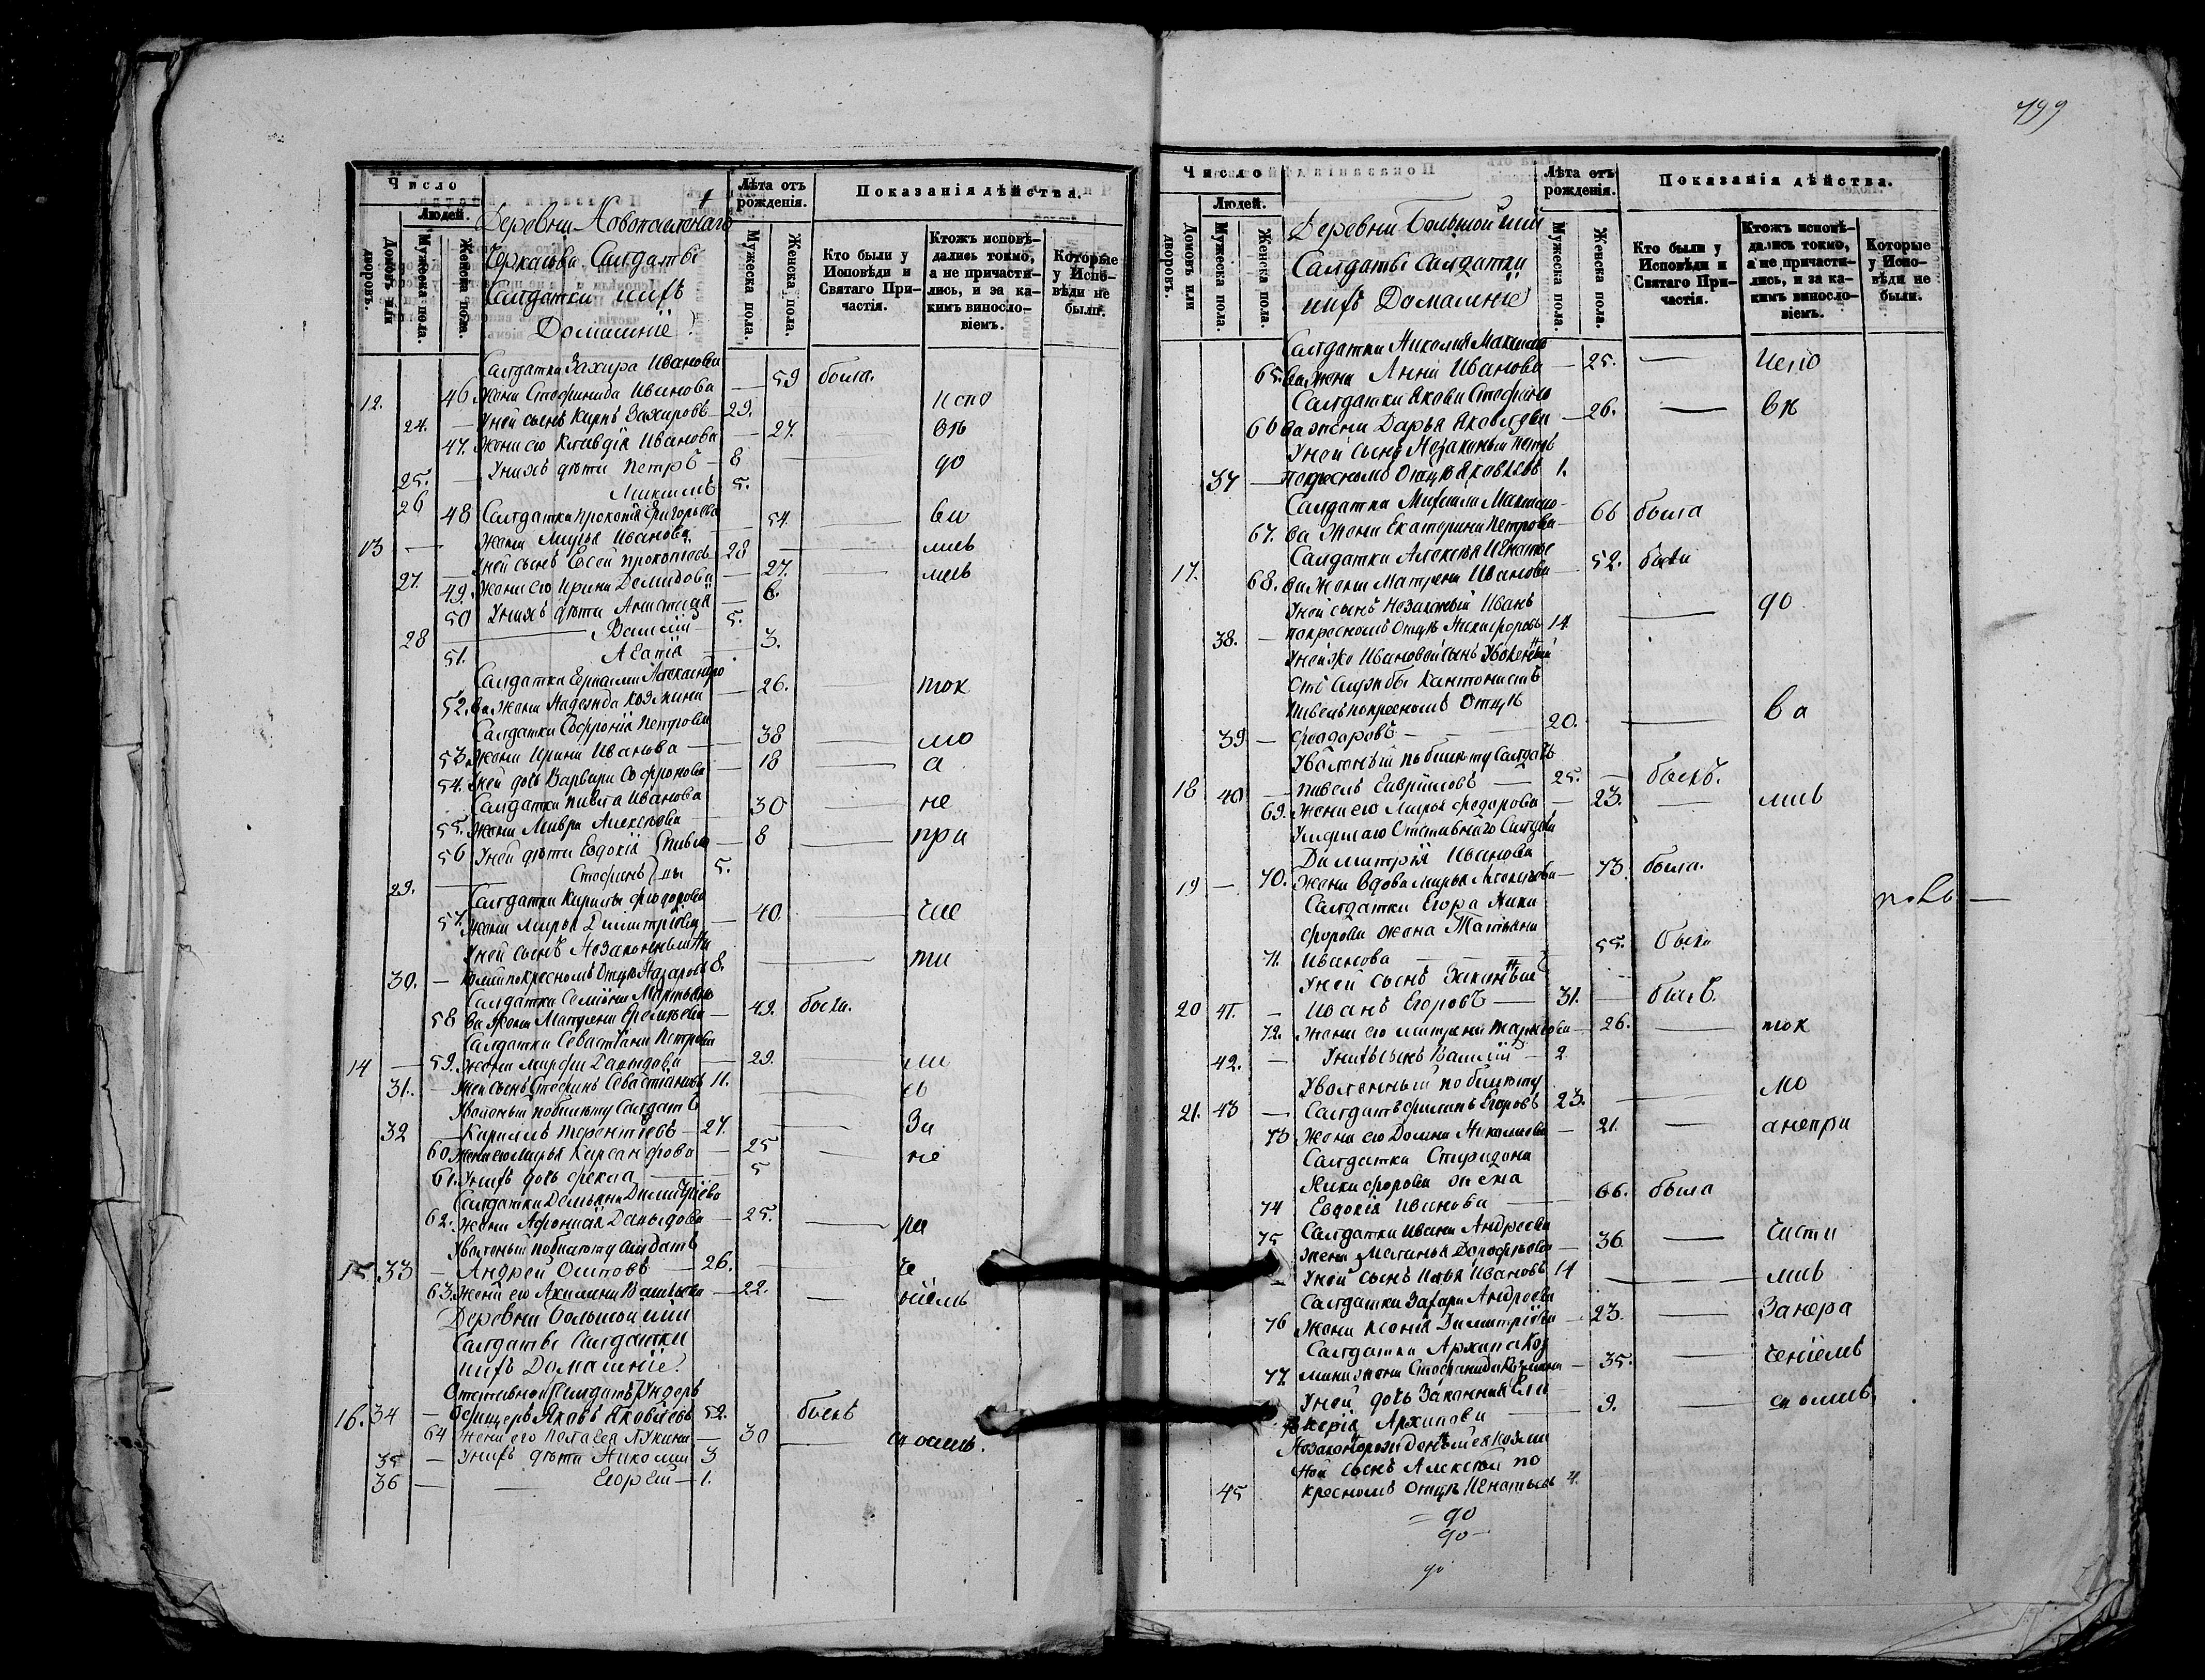 799
Число
Людей.
Домовъ или дворовъ.
Мужеска пола.
Женска пола.
Деревни
Черкасова Салдаты
Салдатки ихъ
Домашніе
Лѣта отъ рожденія.
Мужеска пола.
Женска пола.
Показанія дѣйства.
Кто были у Исповѣди и Святаго Причастія.
Ктожъ исповѣдались токмо, а не причастились, и за какимъ винословіемъ.
Которые у Исповѣди не были.
Салдатки Захара Иванова
12. 46 жена Стефанида Иванова — 59 была.
24. — У ней сынъ Карпъ Захаровъ 29. испо
47. жена его Клавдія Иванова — 27. вѣ
25. — У нихъ дѣти Петръ — 8 до
26 5.
48 Салдатки Прокопія Григорьева
13 — жена Марья Иванова — 54. ва
27. — У ней сынъ Евсей Прокопьевъ 28 лись
49. жена его Ирина Демидова — 27. лись
50 У нихъ дѣти — 6.
28 — Василій 5.
51. Агапія — 3.
Салдатки Александро
52. ва жена Надежда Козмина — 26. ток
Салдатки Софронія Петрова
53. жена Ирина Иванова — 38 мо
54. У ней дочь Варвара Софронова — 18 а
Салдатки Павла Иванова
55. жена Мавра Алексѣева — 30 не
56 У ней дѣти Евдокія — 8 при
29. — Стефанъ 5.
Салдатки Кирилы Феодорова
57. жена Марья Димитріева — 40. час
У ней сынъ Незаконный Ни
30. — колай по кресномъ отцѣ Назаровъ 8. ти
Салдатки Семіона Мартыно
58 ва жена Матрена — 49. была.
Салдатки Севастіана Петрова
14 — 59. жена Марфа Давыдова — 29. ли
31. — У ней сынъ Стефанъ Севастіановъ 11. сь
Уволеный по билету Салдатъ
32 — Кирилъ Терентіевъ — 27. За
60 жена его Марья Кирсанфова — 25 не
61. У нихъ дочь Фекла — 5
Салдатки Демьяна Димитріева
62. жена Афонасія Давыдова — 25. ра
Уволеный по билету Салдатъ
15. 33 — Андрей Осиповъ — 26. че
63. жена его Акилина Васильева — 22. ніемъ
Деревни Большой
Салдаты Салдатки
ихъ Домашніе
Отставной Салдатъ Ундеръ
16. 34 — Офицеръ Яковъ Яковлевъ 52. былъ
64 жена его Пелагея Лукина — 30 своимъ.
35 — У нихъ дѣти Николай 3
36 — Егорей — 1.
Число
Людей.
Домовъ или дворовъ.
Мужеска пола.
Женска пола.
Деревни Большой
Салдаты Салдатки
ихъ Домашніе
Лѣта отъ рожденія.
Мужеска пола.
Женска пола.
Показанія дѣйства.
Кто были у Исповѣди и Святаго Причастія.
Ктожъ исповѣдались токмо, а не причастились, и за какимъ винословіемъ.
Которые у Исповѣди не были.
Салдатки Николая Максимо
65. ва жена Анна Иванова — 25. — испо
Салдатки Якова Стефано
66 ва жена Дарья Яковлева — 26. — вѣ
У ней сынъ Незаконый Петръ
37 — по кресномъ Отцѣ Яковлевъ 1.
Салдатки Михаила Максимо
67. ва жена Екатерина Петрова — 66 была
Салдатки Алексѣя Игнатье
17. 68. ва жена Матрена Иванова — 52. была
У ней сынъ Незаконый Иванъ
38. — по кресномъ Отцѣ Никифоровъ 14. — до
У ней же Ивановой сынъ Уволенный
отъ службы Кантонистъ
Павелъ по кресномъ Отцѣ
39 — Феодоровъ — 20. — ва
Уволеный по билету Салдатъ
18 40 — Павелъ Гавриловъ — 25. — былъ.
69. жена его Марья Федорова — 23. — лись
Умершаго Отставнаго Салдата
Димитрія Иванова
19 — 70. жена вдова Марья Алексѣева — 73. была.
Салдатки Егора Ники
форова жена Татьяна
71. Иванова — 55. была
У ней сынъ Законный
20 41. — Иванъ Егоровъ — 31. — былъ.
72. жена его Матрена — 26. — ток
42. — У нихъ сынъ Василій — 2
Уволенный по билету
21. 43 — Салдатъ Филипъ Егоровъ 23. — мо
73 жена его Домна Николаева — 21. — а непри
Салдатка Спиридона
Никифорова жена
74 Евдокія Иванова — 66. была
Салдатки Ивана Андреева
75 жена Маланья Дорофѣева — 36. — части
— У ней сынъ Илья Ивановъ 14 — лись
Салдатки Захара Андреева
76 жена Ксенія Димитріева — 23. — За нера
Салдатки Архипа Коз
77. мина жена Стефанида Козмина — 35. — ченіемъ
У ней дочь Законная Гли
78 керія Архипова — 9. — своимъ.
Незаконорожденный ея Козми
ной сынъ Алексѣй по
45 кресномъ отцѣ Игнатьевъ 4.